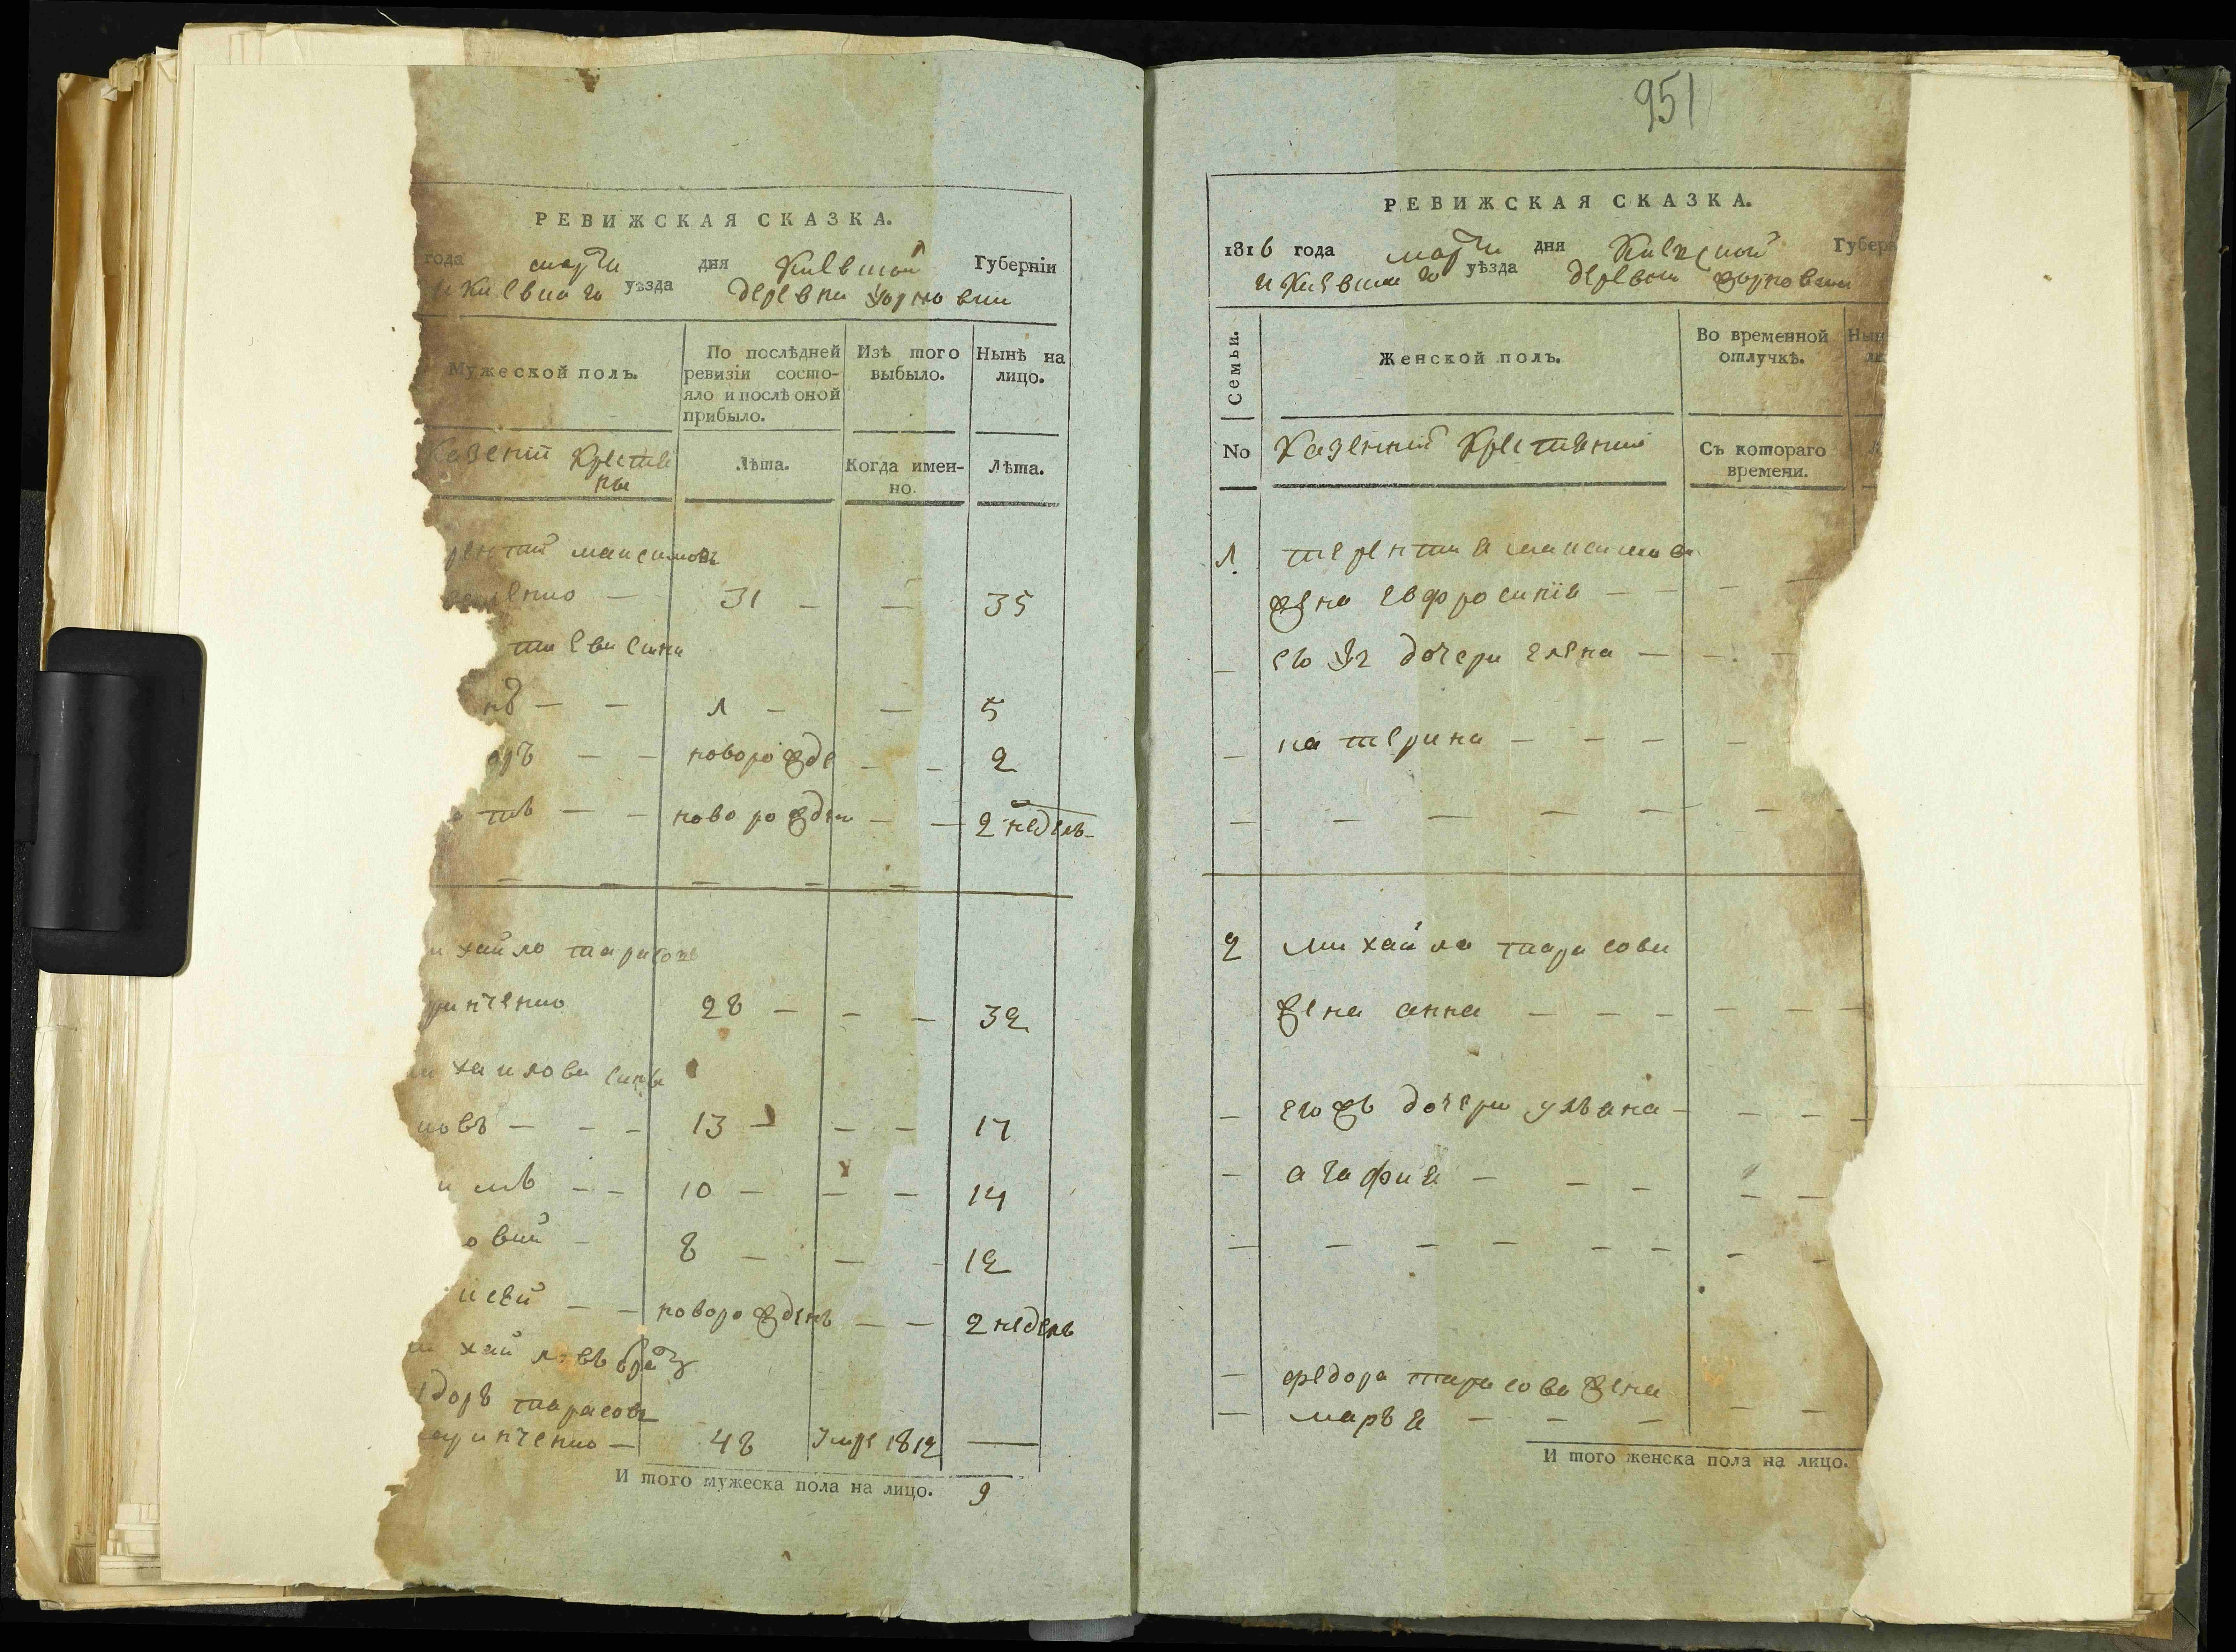 951
РЕВИЖСКАЯ СКАЗКА.
года марта дня Киевской Губернiи
и Киевскаго уѣзда деревни Жорновки
Мужеской полъ.
По послѣдней ревизiи состо-
яло и послѣ оной
прибыло.
Изъ того
выбыло.
Нынѣ на
лицо.
Казеннiи крестья
ны
Лѣта.
Когда имен-
но.
Лѣта.
рентий максимовъ
енко — 31 — — 35
тиеви сини
нъ — — 1 — — 5
оръ — — новорожде — — 2
тъ — — новорожден — — 2 недель
ихайло тарасовъ
ринченко 28 — — — 32
хаилови сини
ковъ — — — 13 — — — 17
имъ — — 10 — — — 14
овий — 8 — — — 12
исей — — новорожденъ — — 2 недель
хайловъ братъ
едоръ тарасовъ
ринченко — 48 Умре 1812 —
И того мужеска пола на лицо. 9
РЕВИЖСКАЯ СКАЗКА.
1816 года марта дня Киевской Губерн
и Киевскаго уѣзда деревни Жорновки
Семьи.
Женской полъ.
Во временной
отлучкѣ.
Нын
No
Казеннiй крестьянки
Съ котораго
времени.
1 терентия максимова
жена евфросинiя — — —
— его жъ дочери елена — — —
— катерина — — — —
— — — — — — —
2 михайла тарасова
жена анна — — — — — —
— его жъ дочери ульяна — — — —
— агафия — — — — —
— — — — — — — —
— федора тарасова жена
— марья — — — — —
И того женска пола на лицо.